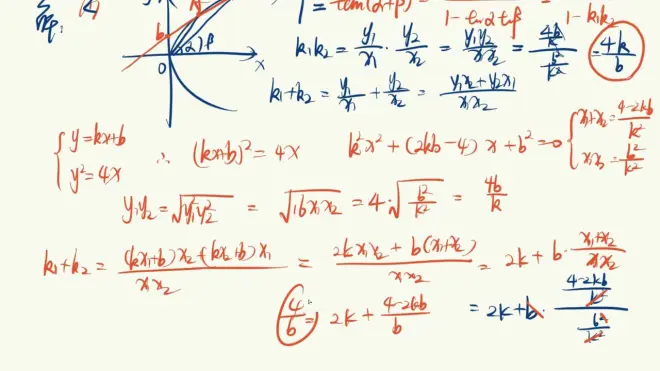 解: (4)
1 = tan(α+β) =
1 - tanα tanβ
1 - k₁k₂
b
α β
O
x
k₁k₂ = y₁/x₁ · y₂/x₂ = y₁y₂/x₁x₂ = (4b/k)/(b²/k²) = 4k/b
k₁+k₂ = y₁/x₁ + y₂/x₂ = (y₁x₂+y₂x₁)/x₁x₂
{ y=kx+b
y²=4x
∴ (kx+b)² = 4x
k²x² + (2kb-4)x + b² = 0
{ x₁+x₂ = (4-2kb)/k²
x₁x₂ = b²/k²
y₁y₂ = √(y₁²y₂²) = √(16x₁x₂) = 4·√(b²/k²) = 4b/k
k₁+k₂ = ((kx₁+b)x₂+(kx₂+b)x₁)/x₁x₂ = (2kx₁x₂ + b(x₁+x₂))/x₁x₂ = 2k + b · (x₁+x₂)/x₁x₂
4/b = 2k + (4-2kb)/b
= 2k + b · ((4-2kb)/k²)/(b²/k²)